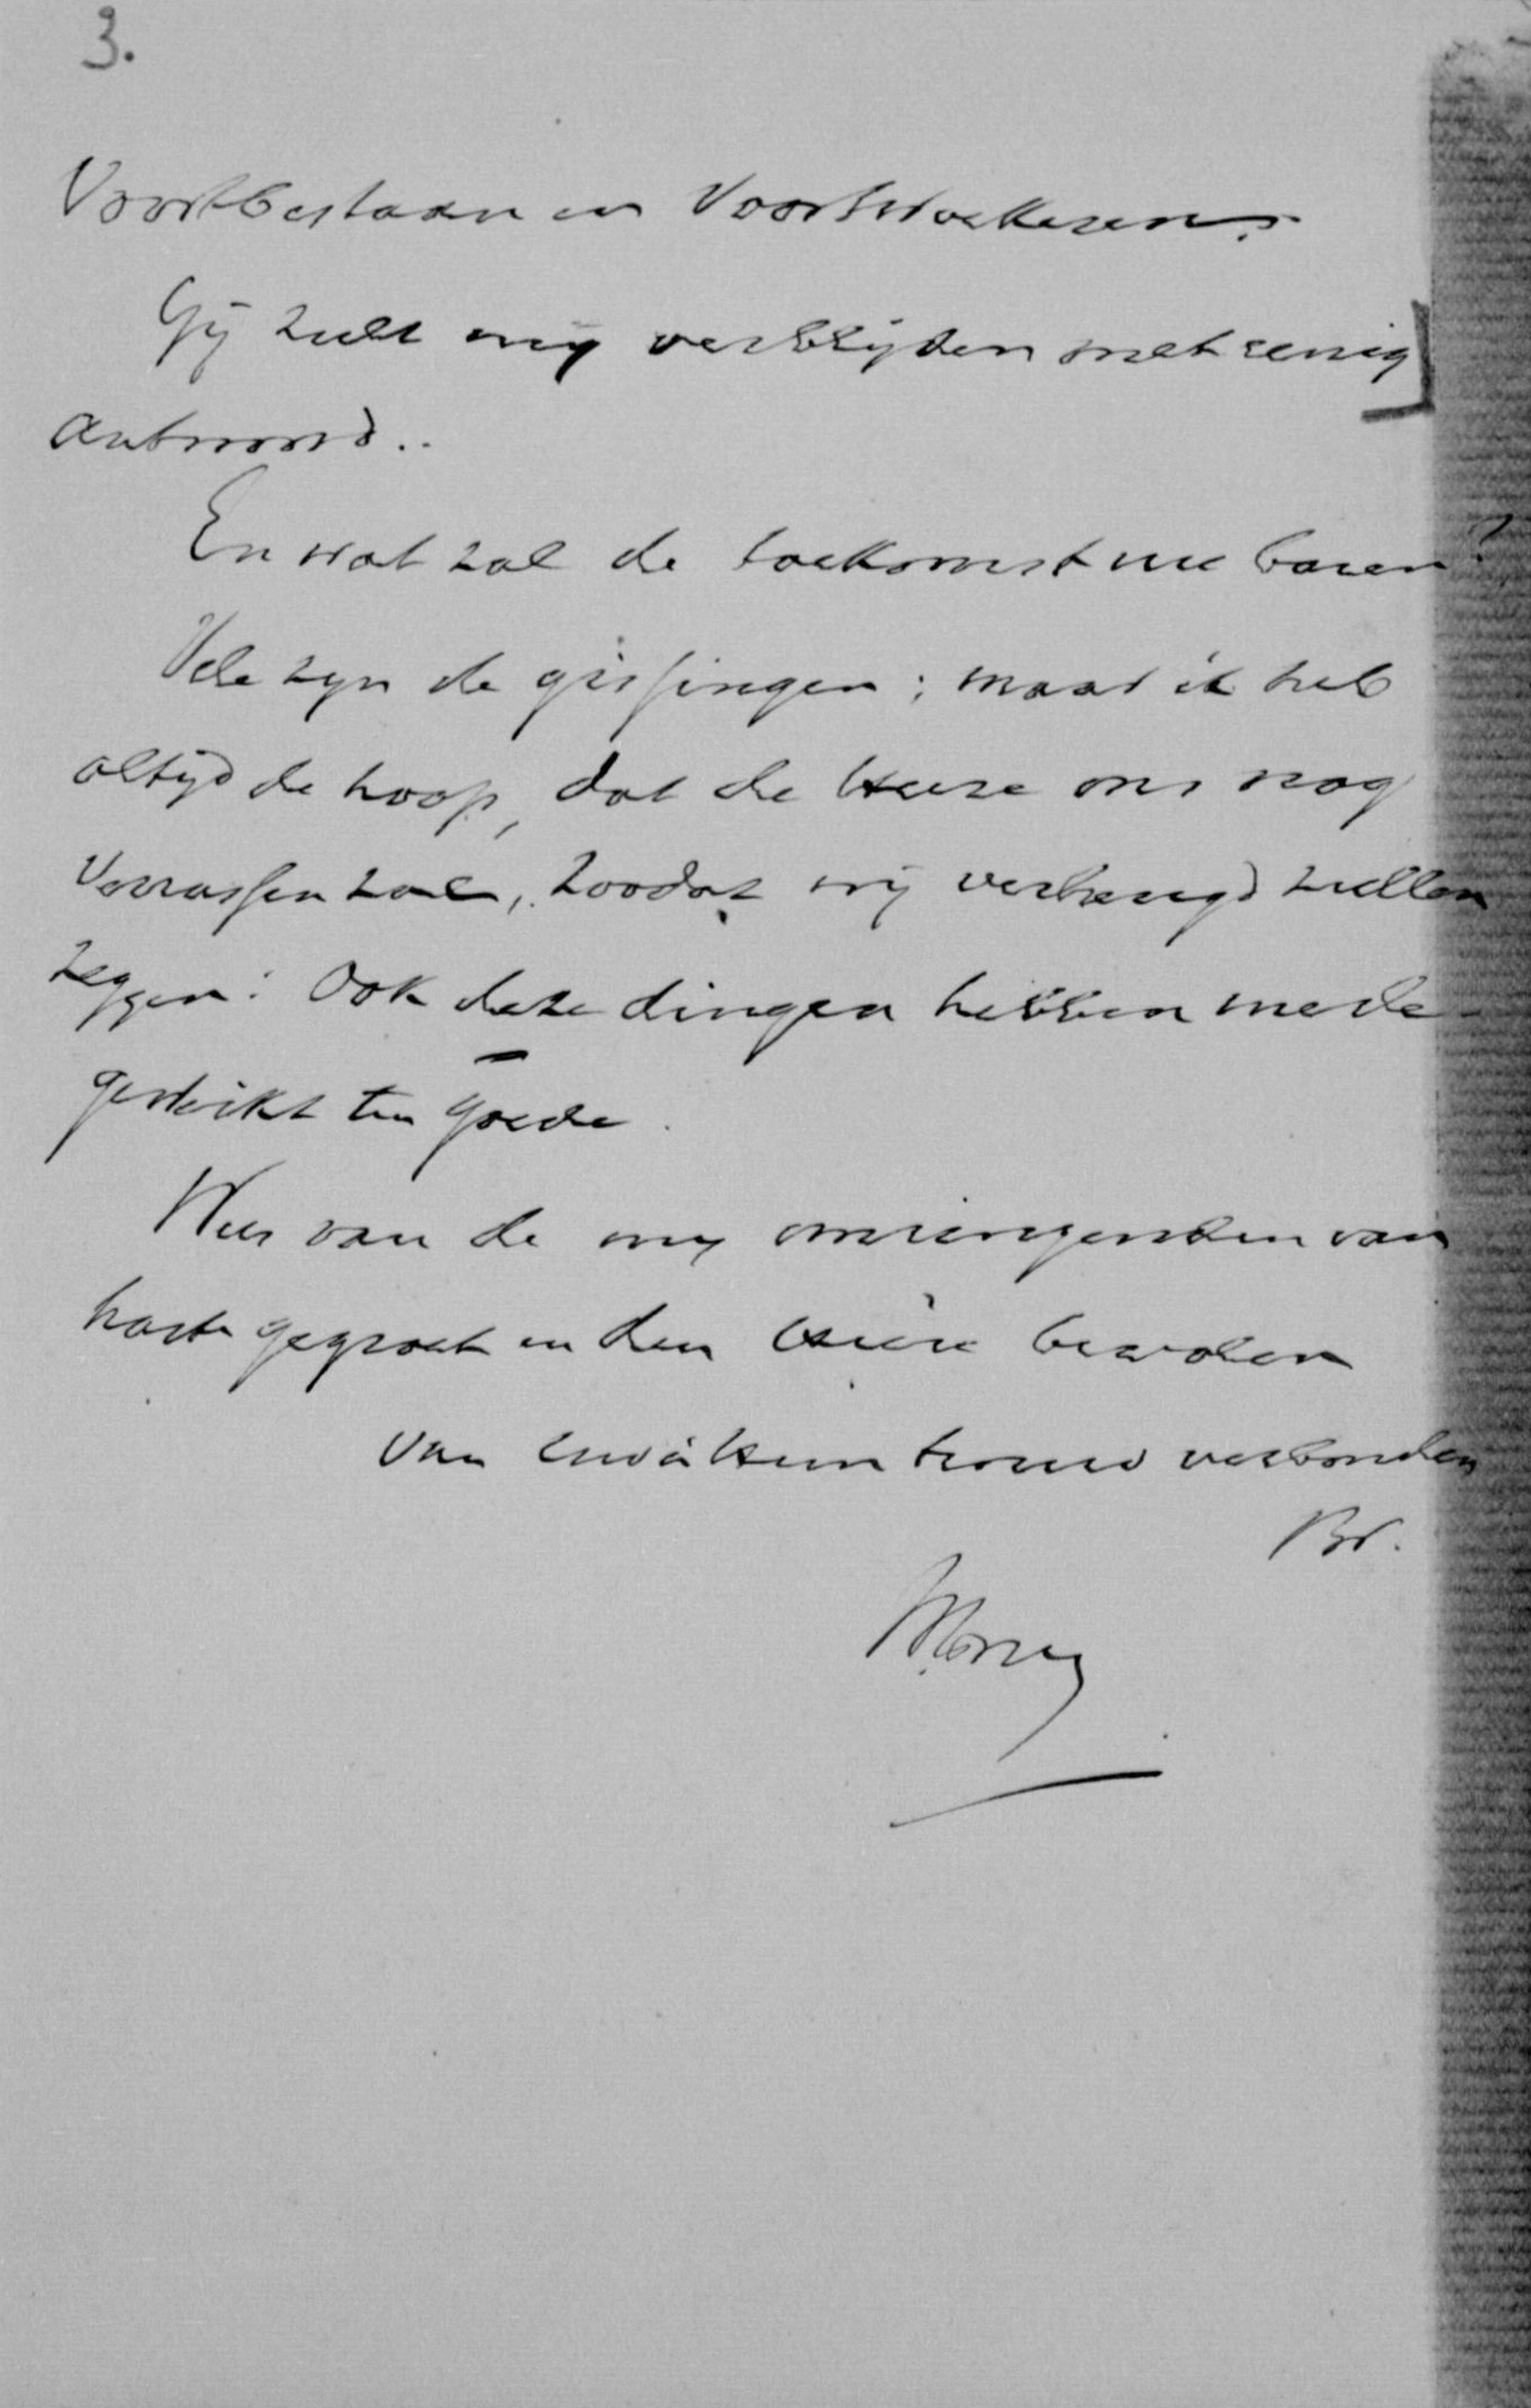 3.
Voortbestaan en Voortwoekeren.
Gij zult mij verblijden met eenig
antwoord..
En wat zal de toekomst nu baren?
Vele zijn de gissingen; maar ik heb
altijd de hoop, dat de Heere ons nog
verrassen zal, zoodat wij verheugd zullen
zeggen: Ook deze dingen hebben mede-
gewerkt ten goede.
Wees van de mij omringenden van
harte gegroet en den Heere bevolen
Van Uw à Hem trouw verbonden
Br.